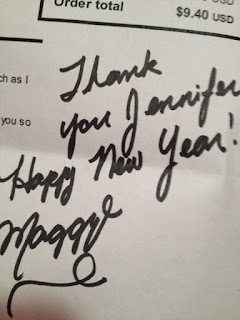 Order total
$9.40 USD
Thank
ch as I
you Jennifer
you so
Happy New Year!
Maggie